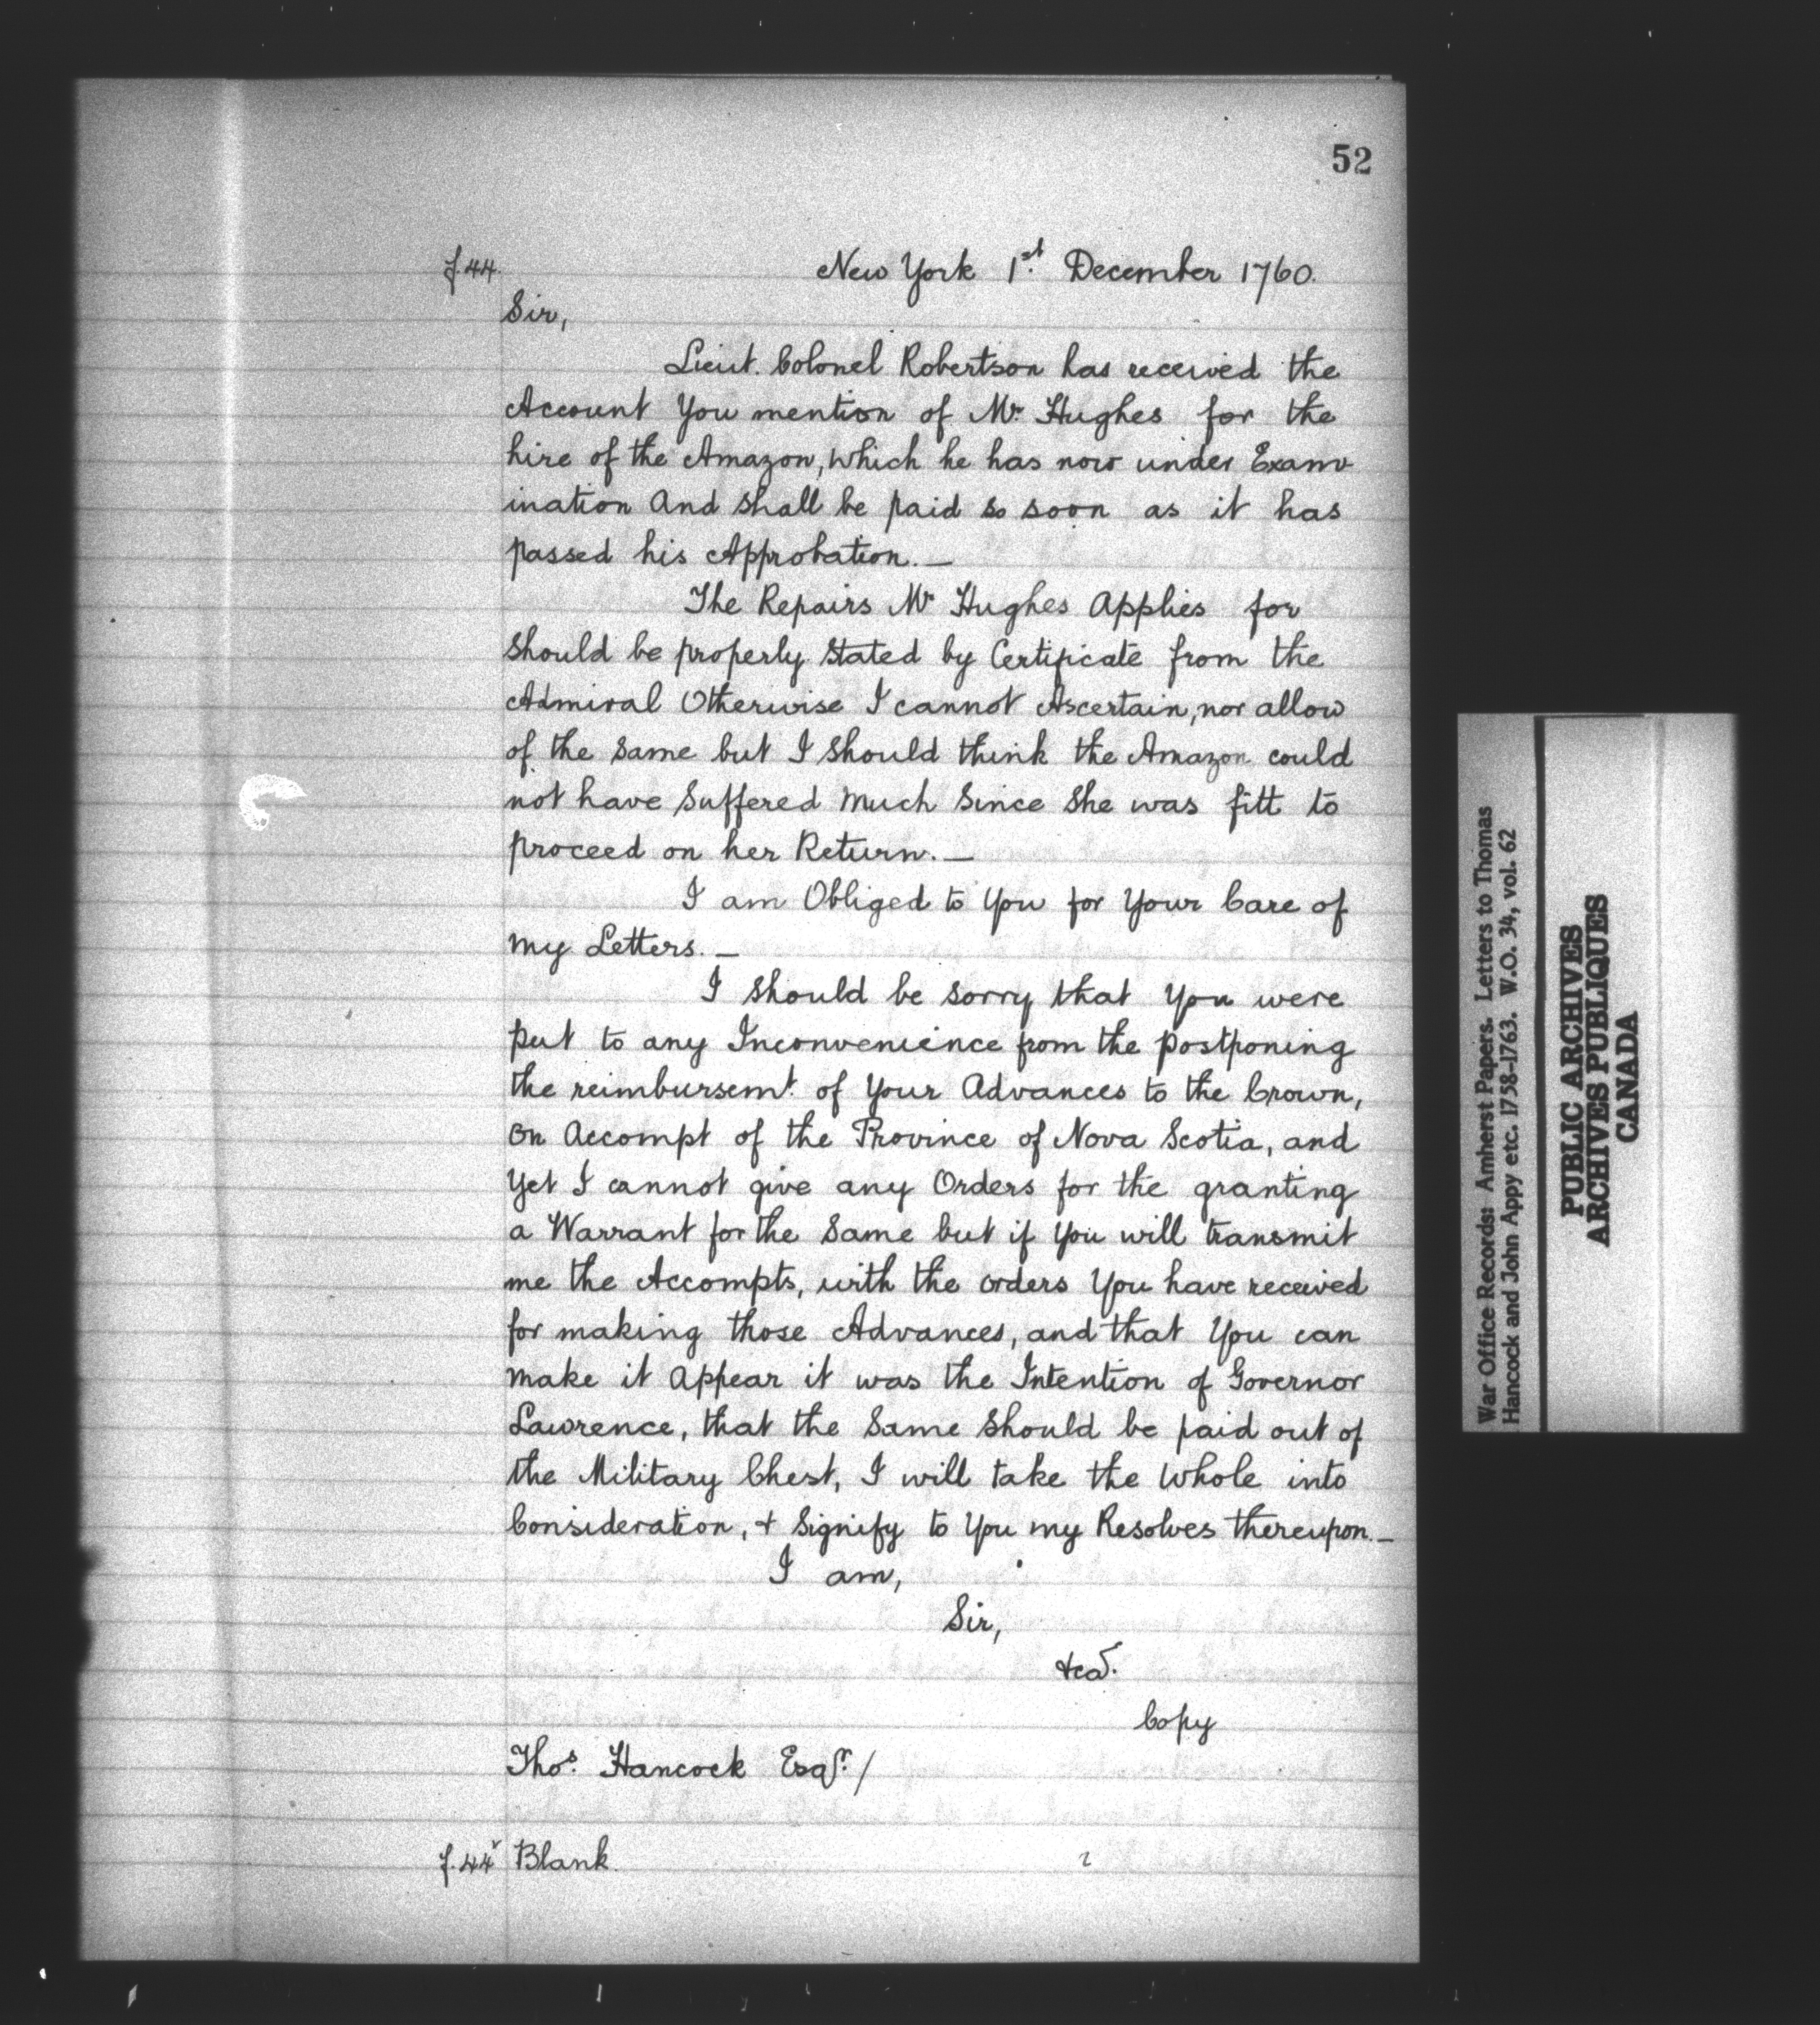 52
f.44. New York 1st. December 1760.
Sir,
Lieut. Colonel Robertson has received the
Account You mention of Mr. Hughes for the
hire of the Amazon, which he has now under Exam-
ination And shall be paid so soon as it has
passed his Approbation.—
The Repairs Mr Hughes Applies for
Should be properly Stated by Certificate from the
Admiral Otherwise I cannot Ascertain, nor allow
of the Same but I Should think the Amazon could
not have Suffered Much Since She was fitt to
proceed on her Return.—
I am Obliged to You for Your Care of
My Letters.—
I Should be Sorry that You were
put to any Inconvenience from the Postponing
the reimbursemt. of Your Advances to the Crown,
On Accompt of the Province of Nova Scotia, and
Yet I cannot give any Orders for the granting
a Warrant for the Same but if You will transmit
me the Accompts, with the orders You have received
for making those Advances, and that You can
Make it Appear it was the Intention of Governor
Lawrence, that the Same Should be paid out of
the Military Chest, I will take the Whole into
Consideration, + Signify to You my Resolves thereupon.—
I am,
Sir,
&ca.
Copy
Thos. Hancock Esqr. /
f.44v Blank
2
War Office Records: Amherst Papers. Letters to Thomas
Hancock and John Appy etc. 1758-1763. W.O. 34, vol. 62
PUBLIC ARCHIVES
ARCHIVES PUBLIQUES
CANADA